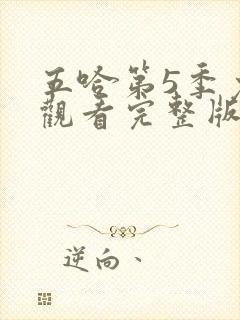 五哈第5季
觀看完整版
逆向、